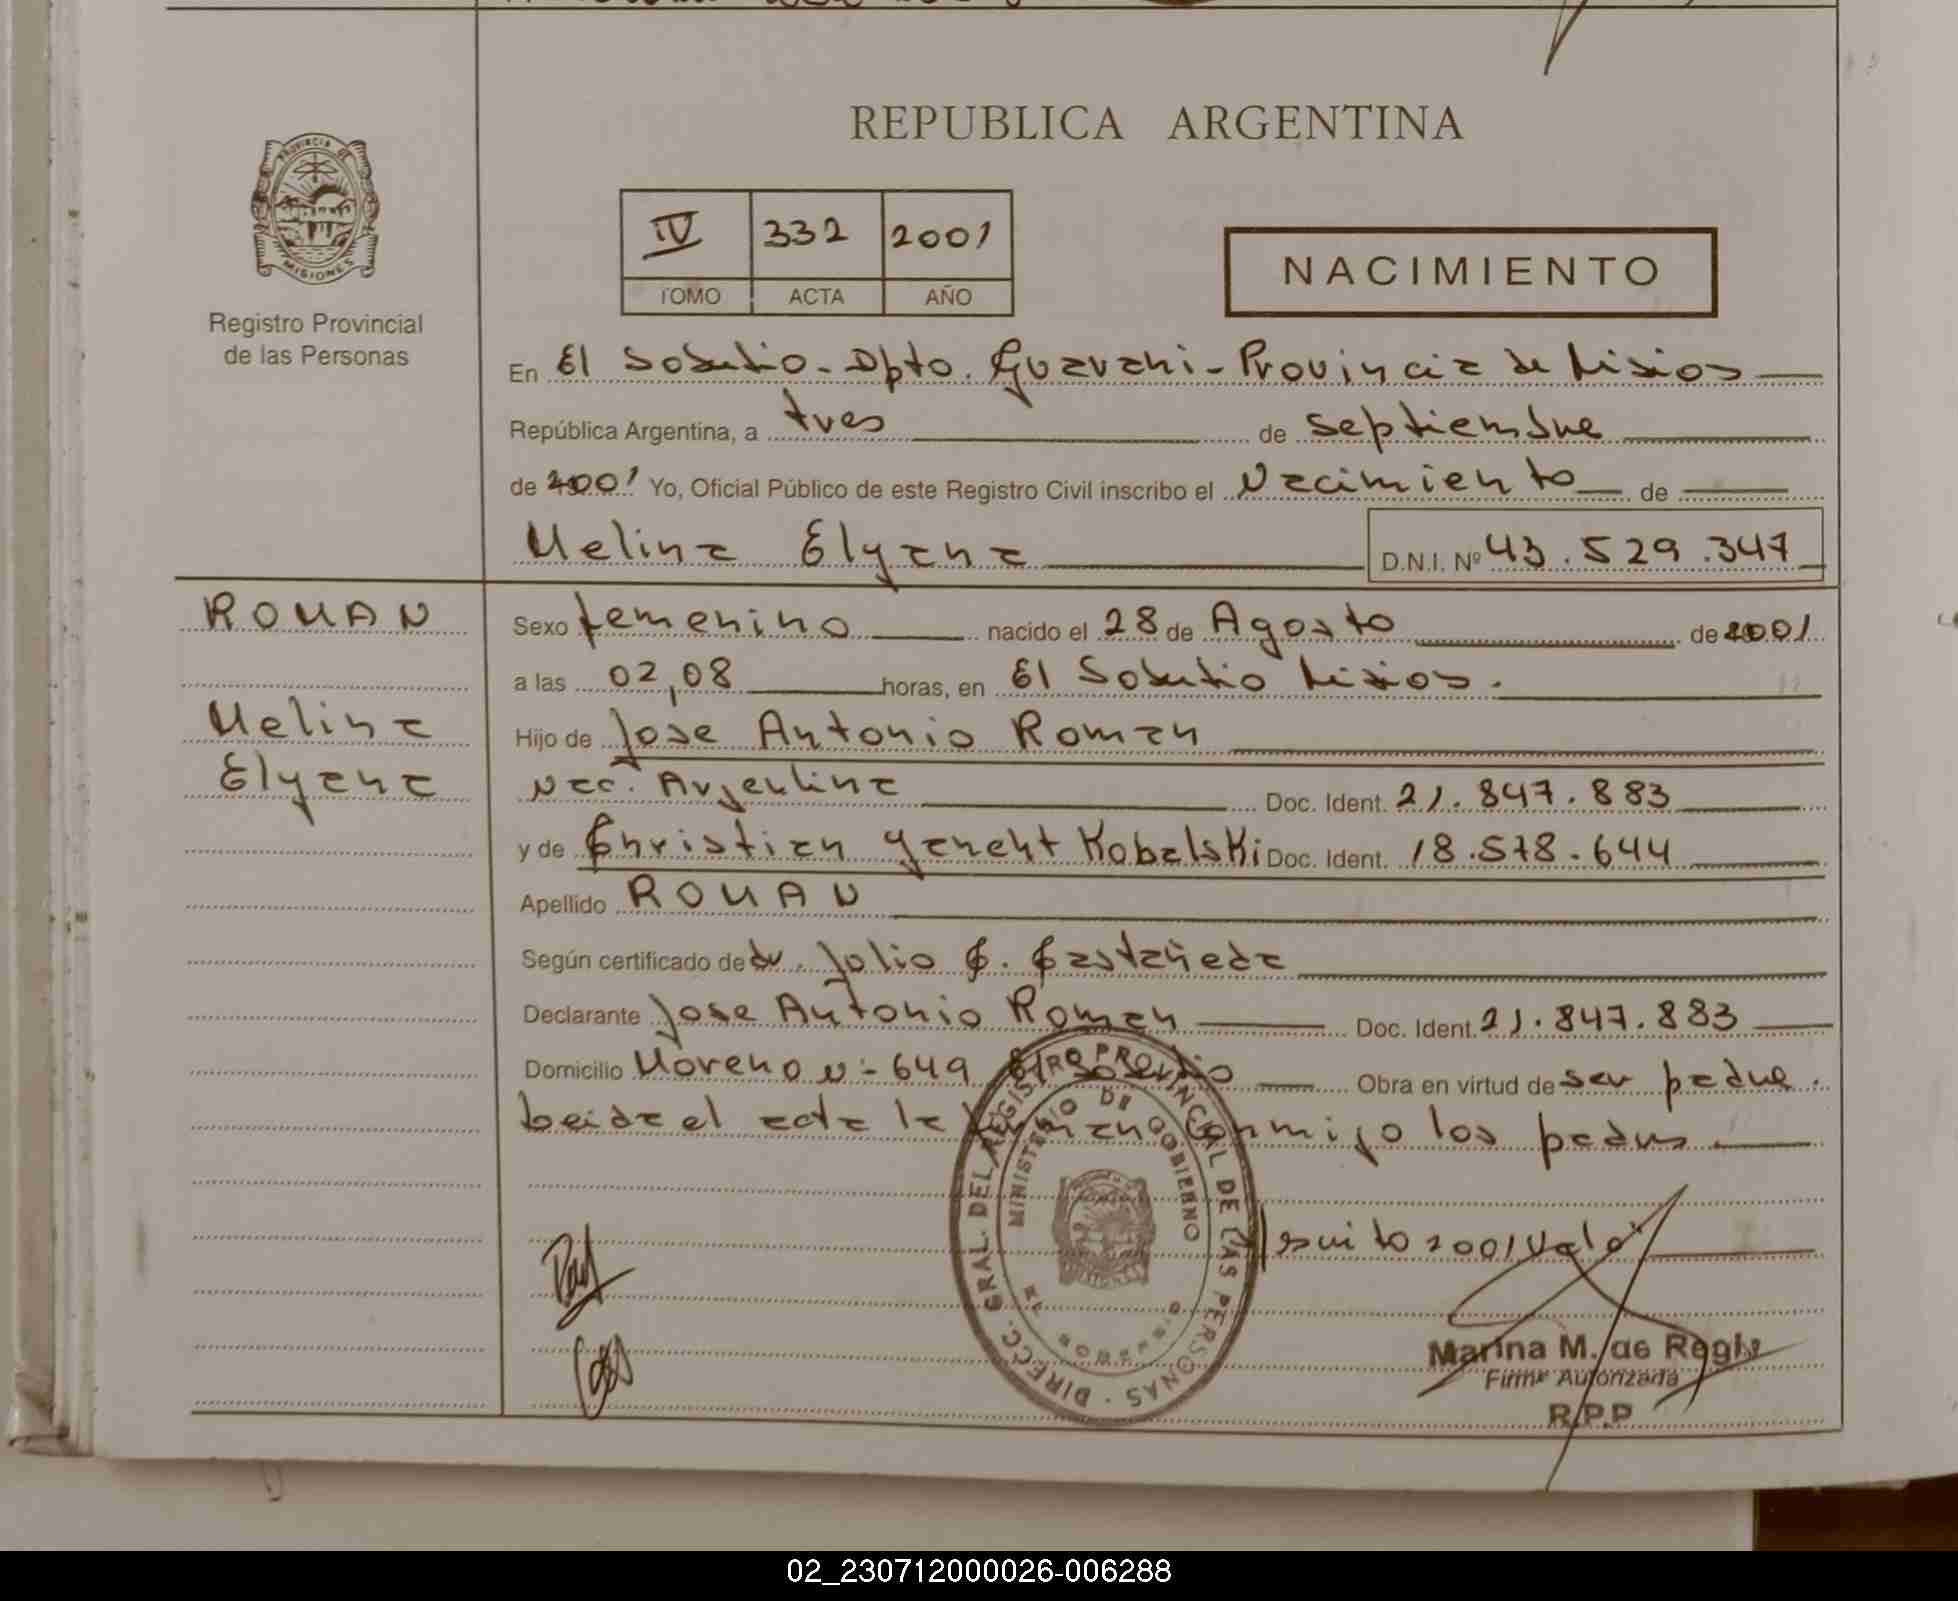 REPUBLICA ARGENTINA
PROVINCIA DE
MISIONES
Registro Provincial
de las Personas
IV 332 2001
TOMO ACTA AÑO
NACIMIENTO
En El Soberbio - Dpto. Guarani - Provincia de Misiones
República Argentina, a tres de septiembre
de 2001 Yo, Oficial Público de este Registro Civil inscribo el Nacimiento de
Melina Elyana D.N.I. Nº 43.529.347
ROMAN
Melina
Elyana
Sexo femenino nacido el 28 de Agosto de 2001
a las 02,08 horas, en El Soberbio Misiones.
Hijo de Jose Antonio Roman
Nac. Argentina Doc. Ident. 21.847.883
y de Christian Yaneht Kobalski Doc. Ident. 18.578.644
Apellido ROMAN
Según certificado de Dr. Julio C. Castañeda
Declarante Jose Antonio Roman Doc. Ident. 21.847.883
Domicilio Moreno Nº 649 El Soberbio Obra en virtud de ser padre.
Leida el acta la firman conmigo los padres
escrito 2001 Vale
DIRECC. GRAL. DEL REGISTRO PROVINCIAL DE LAS PERSONAS
MINISTERIO DE GOBIERNO
MISIONES
Marina M. de Regis
Firma Autorizada
R.P.P
02_230712000026-006288